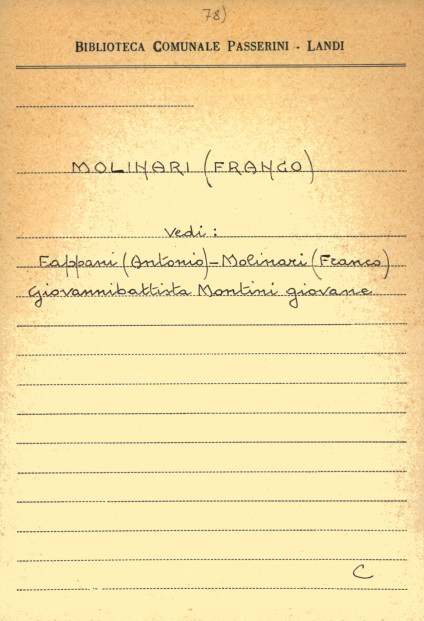 78)
BIBLIOTECA COMUNALE PASSERINI - LANDI
MOLINARI (FRANCO)
Vedi:
Fappani (Antonio) - Molinari (Franco)
Giovannibattista Montini giovane
C